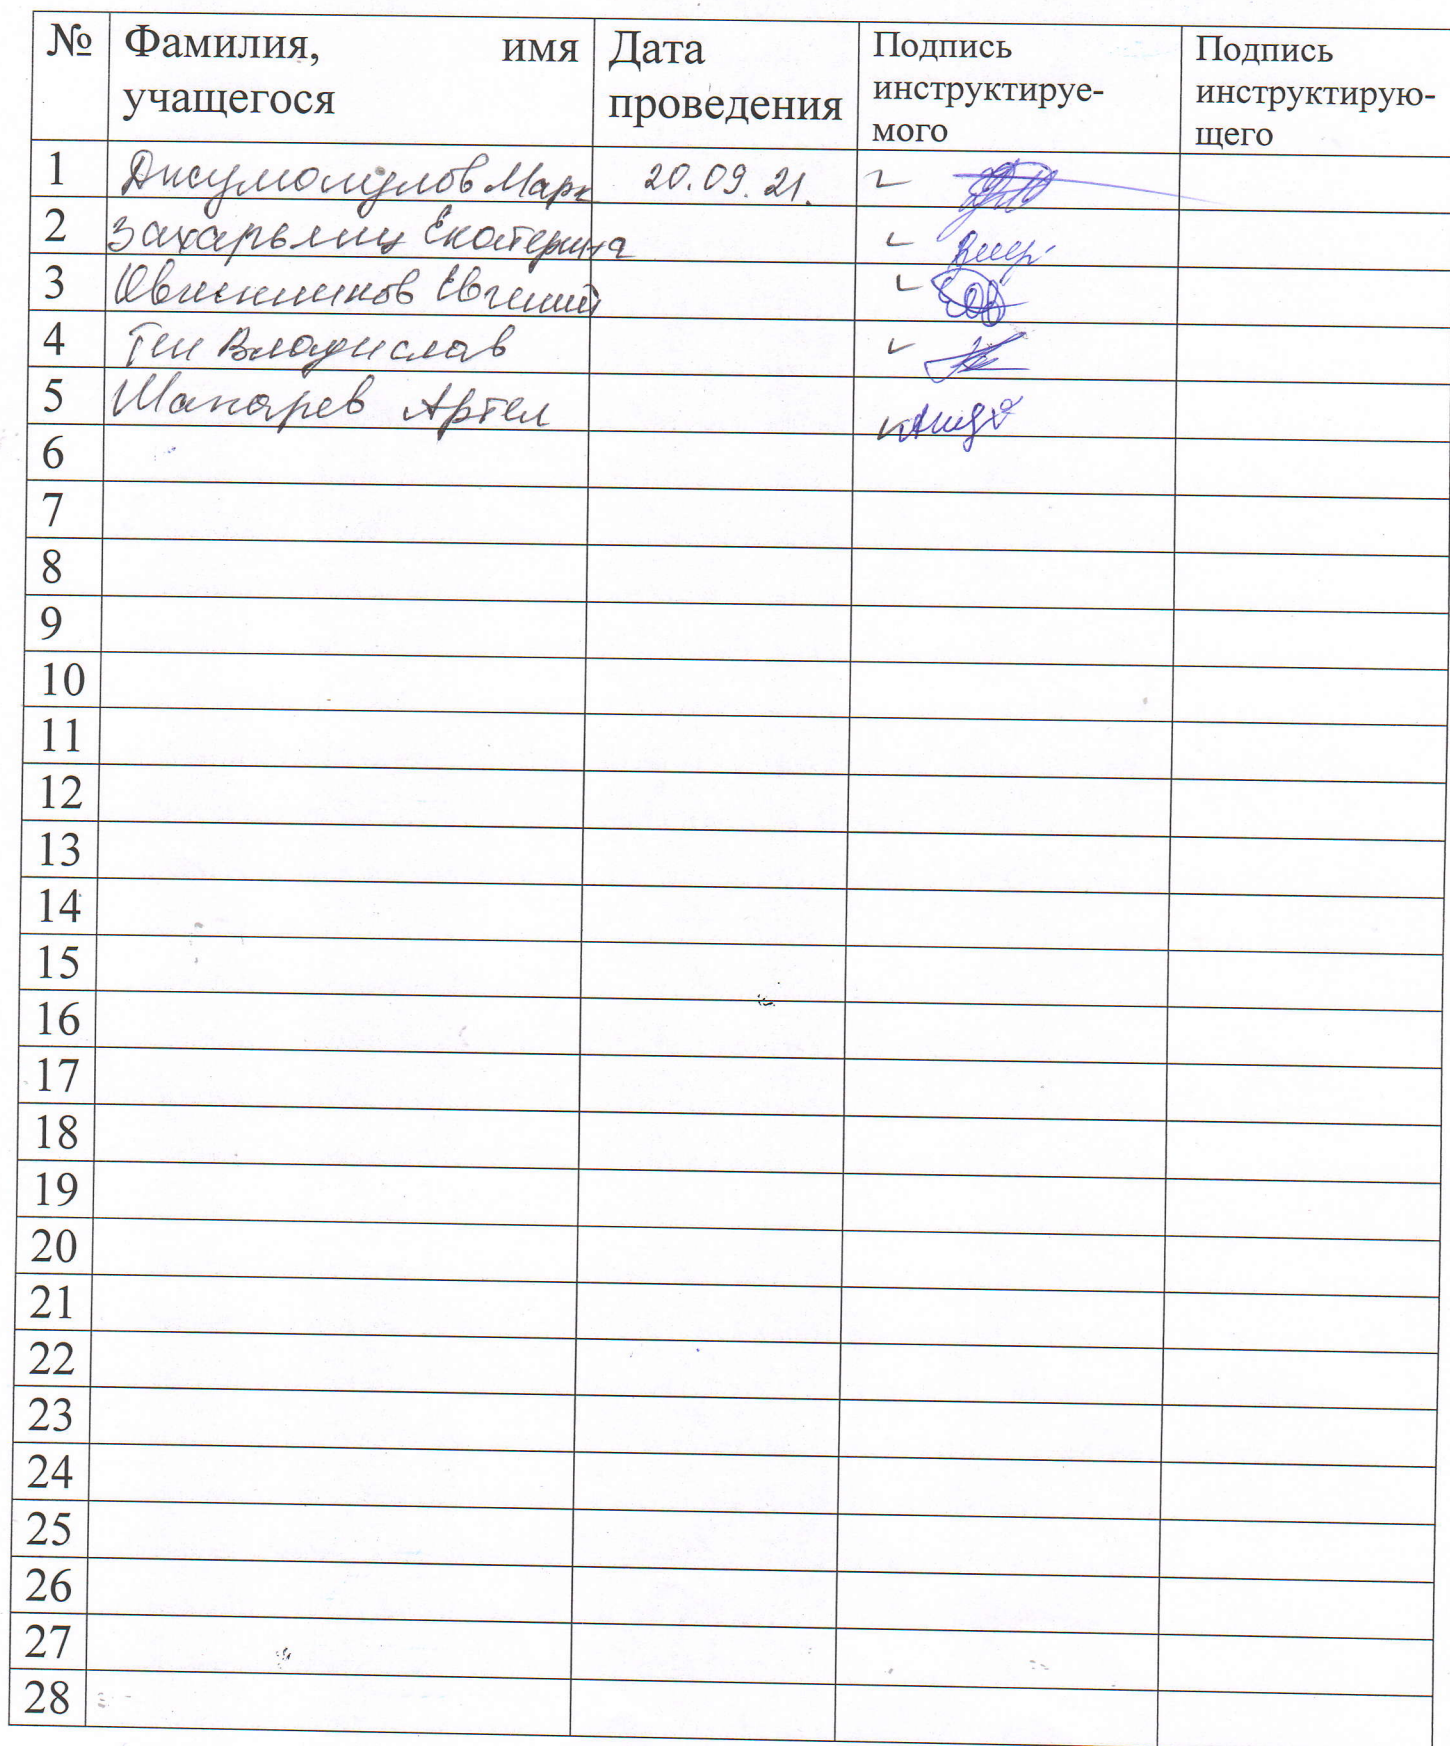 № Фамилия, имя учащегося Дата проведения Подпись инструктируе-мого Подпись инструктирую-щего
1 Марк 20.09.21.
2 Екатерина
3 Овчинников Евгений
4 Тен Владислав
5 Шапарев Артем
6
7
8
9
10
11
12
13
14
15
16
17
18
19
20
21
22
23
24
25
26
27
28